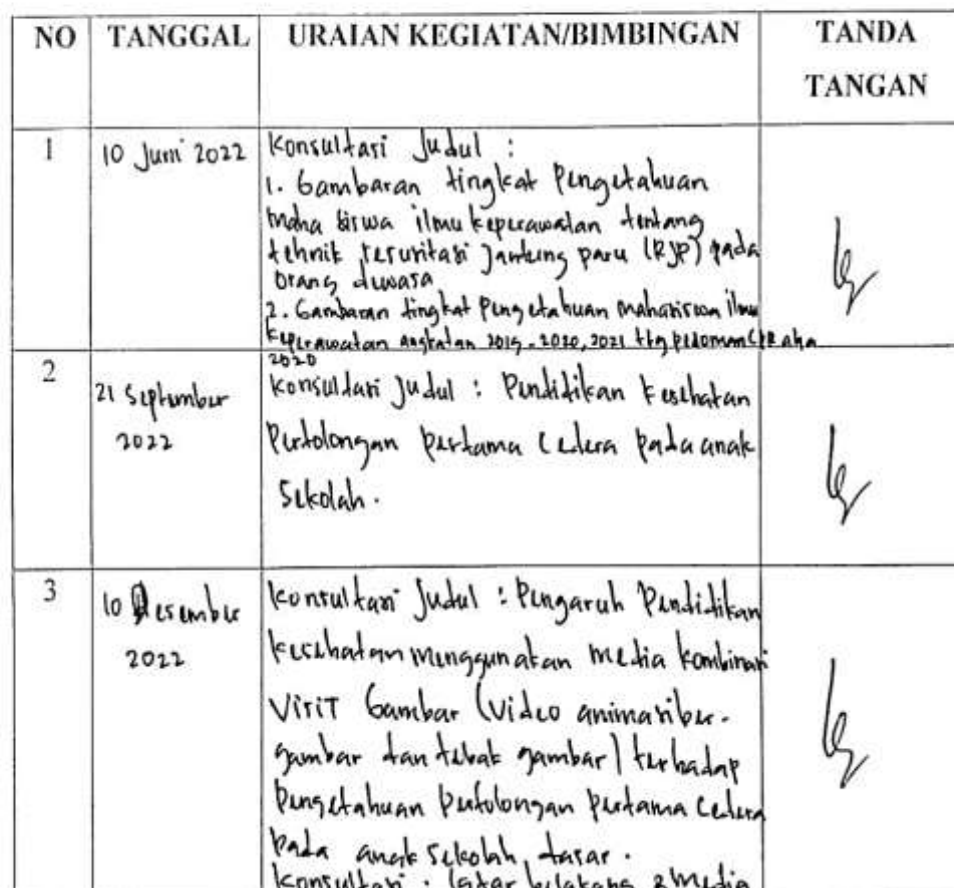 NO TANGGAL URAIAN KEGIATAN/BIMBINGAN TANDA
TANGAN
1 10 Juni 2022 Konsultasi Judul :
1. Gambaran tingkat Pengetahuan
maha siswa ilmu keperawatan tentang
tehnik resusitasi Jantung paru (RJP) pada
orang dewasa
2. Gambaran tingkat Pengetahuan mahasiswa ilmu
keperawatan angkatan 2019-2020, 2021 ttg pedoman CPR aha
2020
2 21 September 2022 Konsultasi Judul : Pendidikan Kesehatan
Pertolongan pertama Cedera pada anak
Sekolah.
3 10 Desember 2022 Konsultasi Judul : Pengaruh Pendidikan
kesehatan menggunakan media kombinasi
VisiT Gambar (Video animasi ber-
gambar dan tebak gambar) terhadap
Pengetahuan pertolongan pertama Cedera
Pada anak sekolah dasar.
Konsultasi : latar belakang & Media